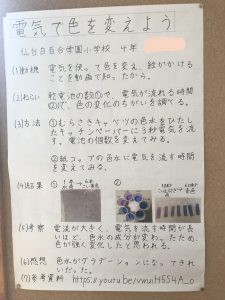 電気で色を変えよう
仙台白百合学園小学校 4年
(1)動機 電気を使って色を変え、絵がかける
ことを動画で知ったから。
(2)ねらい 乾電池の数①や 電気が流れる時間
②で、色の変化のちがいを調べる。
(3)方法 ①むらさきキャベツの色水をひたし
たキッチンペーパーに3秒電気を流
す。電池の個数を変えてみる。
②紙コップの色水に電気を流す時間
を変えてみる。
(4)結果 ① ②
(5)考察 電流が大きく、電気を流す時間が長
いほど、色水の成分が変わったため、
色が強く変化したと思われる。
(6)感想 色水がグラデーションになってきれ
いだった。
(7)参考資料 https://youtu.be/